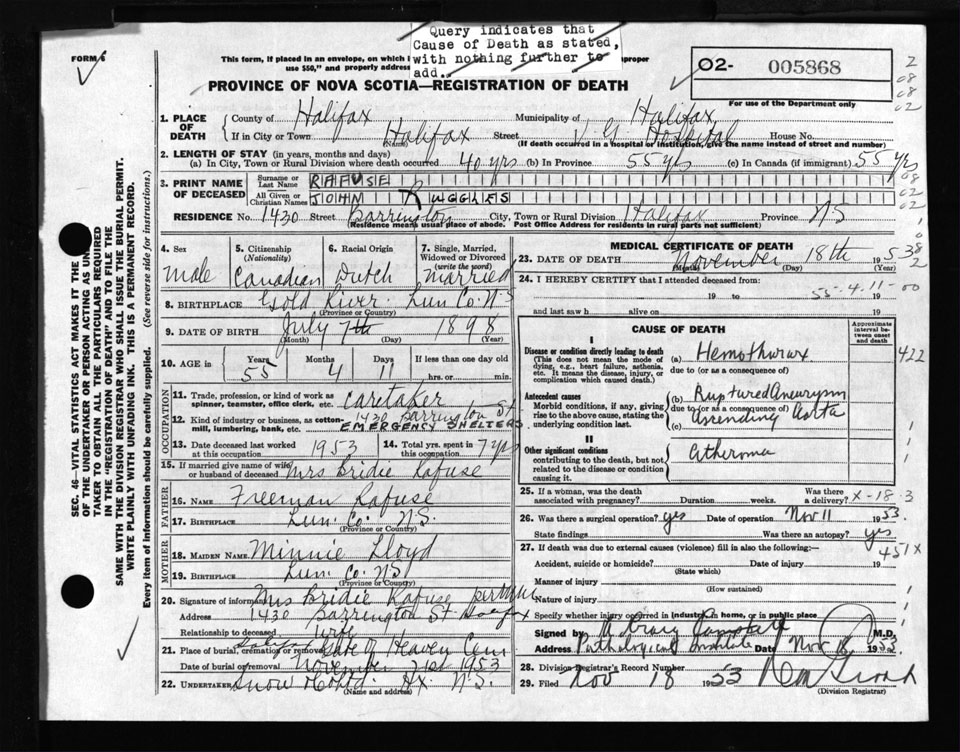 FORM 6
This form, if placed in an envelope, on which
use $50," and properly address
Query indicates that
Cause of Death as stated,
with nothing further to
add.
proper
O2- 005868
For use of the Department only
2
08
08
02
PROVINCE OF NOVA SCOTIA—REGISTRATION OF DEATH
1. PLACE OF DEATH
County of Halifax Municipality of Halifax
If in City or Town Halifax Street V. G. Hospital House No.
(Name) (If death occurred in a hospital or institution, give the name instead of street and number)
2. LENGTH OF STAY (in years, months and days)
(a) In City, Town or Rural Division where death occurred 40 yrs (b) In Province 55 yrs (c) In Canada (if immigrant) 55 yrs
3. PRINT NAME OF DECEASED
Surname or Last Name RAFUSE
All Given or Christian Names JOHN RUGGLES
RESIDENCE No. 1430 Street Barrington City, Town or Rural Division Halifax Province NS
(Residence means usual place of abode. Post Office Address for residents in rural parts not sufficient)
4. Sex Male
5. Citizenship (Nationality) Canadian
6. Racial Origin Dutch
7. Single, Married, Widowed or Divorced (write the word) Married
8. BIRTHPLACE Gold River Lun Co. N.S
(Province or Country)
9. DATE OF BIRTH July 7th 1898
(Month) (Day) (Year)
10. AGE in Years 55 Months 4 Days 11 If less than one day old
hrs. or min.
OCCUPATION
11. Trade, profession, or kind of work as spinner, teamster, office clerk, etc. Caretaker
12. Kind of industry or business, as cotton mill, lumbering, bank, etc. 1430 Barrington St
EMERGENCY SHELTERS
13. Date deceased last worked at this occupation 1953 14. Total yrs. spent in this occupation 7 yrs
15. If married give name of wife or husband of deceased Mrs Bridie Rafuse
FATHER
16. NAME Freeman Rafuse
17. BIRTHPLACE Lun. Co. N.S.
(Province or Country)
MOTHER
18. MAIDEN NAME Minnie Lloyd
19. BIRTHPLACE Lun. Co. N.S.
(Province or Country)
20. Signature of informant Mrs Bridie Rafuse
Address 1430 Barrington St Halifax
Relationship to deceased wife
21. Place of burial, cremation or removal Gate of Heaven Cem
Date of burial or removal November 21st 1953
22. UNDERTAKER Snow & Co Ltd. Hx. N.S.
(Name and address)
MEDICAL CERTIFICATE OF DEATH
23. DATE OF DEATH November 18th 1953
(Month) (Day) (Year)
24. I HEREBY CERTIFY that I attended deceased from:
19 to 19
55-4-11-00
and last saw h alive on 19
CAUSE OF DEATH
Approximate interval between onset and death
I
Disease or condition directly leading to death
(This does not mean the mode of dying, e.g., heart failure, asthenia, etc. It means the disease, injury, or complication which caused death.
(a) Hemothorax
due to (or as a consequence of)
422
Antecedent causes
Morbid conditions, if any, giving rise to the above cause, stating the underlying condition last.
(b) Ruptured Aneurysm
due to (or as a consequence of)
Ascending Aorta
II
Other significant conditions
contributing to the death, but not related to the disease or condition causing it.
Atheroma
25. If a woman, was the death associated with pregnancy? Duration weeks. Was there a delivery? X-18.3
26. Was there a surgical operation? yes Date of operation Nov 11 1953.
State findings Was there an autopsy? yes
451X
27. If death was due to external causes (violence) fill in also the following:—
Accident, suicide or homicide? Date of injury 19
(State which)
Manner of injury
(How sustained)
Nature of injury
Specify whether injury occurred in industry, in home, or in public place
Signed by M.D.
Address Pathological Institute Date Nov 18 1953
28. Division Registrar's Record Number
29. Filed Nov 18 1953
(Division Registrar)
SEC. 46—VITAL STATISTICS ACT MAKES IT THE
OF THE UNDERTAKER OR PERSON ACTING AS UNDER
TAKER TO OBTAIN ALL THE PARTICULARS REQUIRED
IN THE "REGISTRATION OF DEATH" AND TO FILE THE
SAME WITH THE DIVISION REGISTRAR WHO SHALL ISSUE THE BURIAL PERMIT.
WRITE PLAINLY WITH UNFADING INK. THIS IS A PERMANENT RECORD.
Every item of information should be carefully supplied. (See reverse side for instructions.)